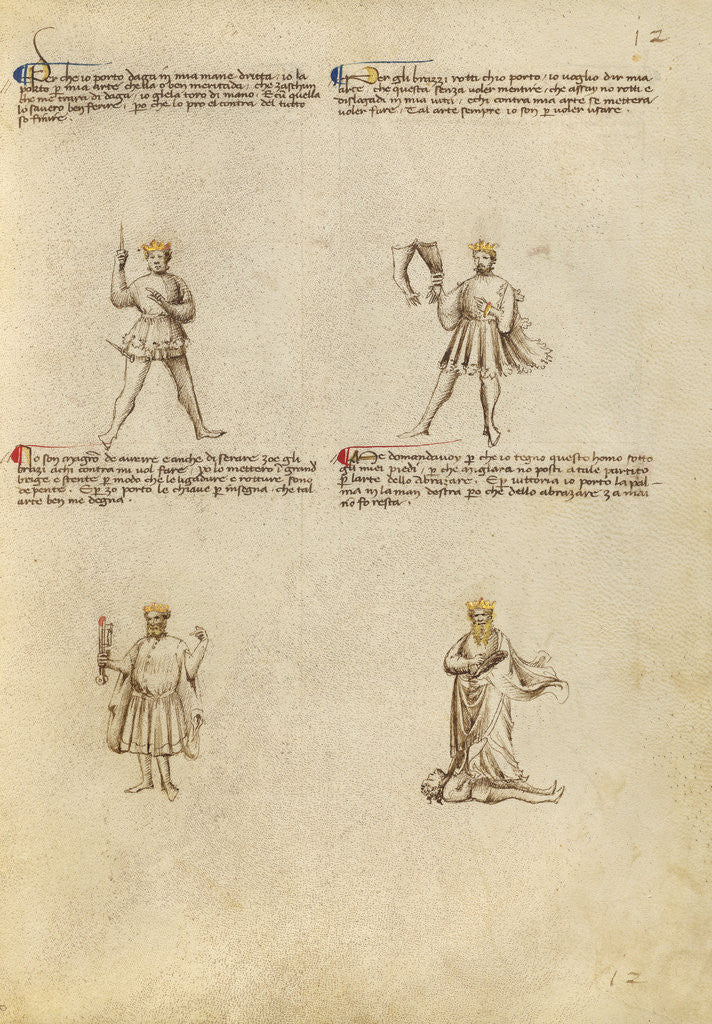 12
Per che io porto daga in mia mane dritta, io la
porto p mia arte chella o ben meritada, che zaschun
che me trara di daga, io glela toro di mano. E cu quella
lo savero ben ferire, po che lo pro el contra del tutto
so finire.
Per gli brazzi rotti ch'io porto, io voglio dir mia
arte, che questa senza voler mentire, che assay no rotti e
dislogadi in mia vita, e chi contra mia arte se mettera
voler fare, Tal arte sempre io son p voler usare.
Io son magro de avrire e anche di serare zoe gli
brazi a chi contra mi vol fare, po lo mettero in grand
brige e stente, p modo che le ligadure e rotture sono
depente. E p zo porto le chiave p insegna, che tal
arte ben me degna.
Me domandavoy p che io tegno questo homo sotto
gli miei piedi, p che migiara no posti a tale partito
p larte dello Abrazare. E p vittoria io porto la pal-
ma in la man destra po che dello abrazare za mai
no fo resta.
12